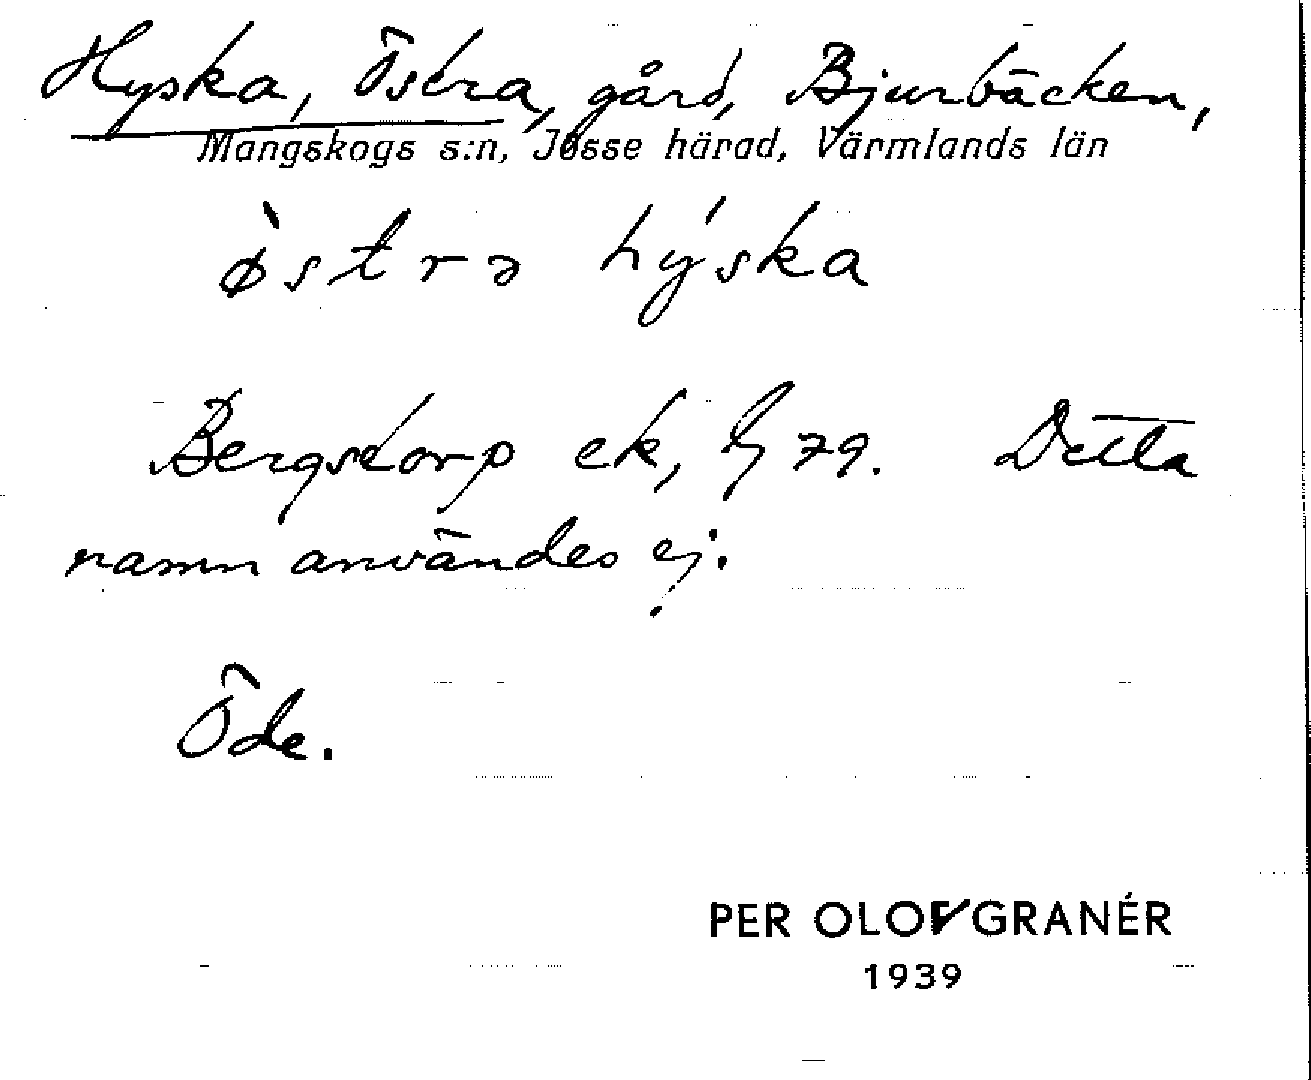 Hyska, Östra, gård, Bjurbäcken,
Mangskogs s:n, Jösse härad, Värmlands län
ø̀strə hýska
Bergstorp ek, bj 79. Detta
namn användes ej.
Öde.
PER OLOF GRANÉR
1939